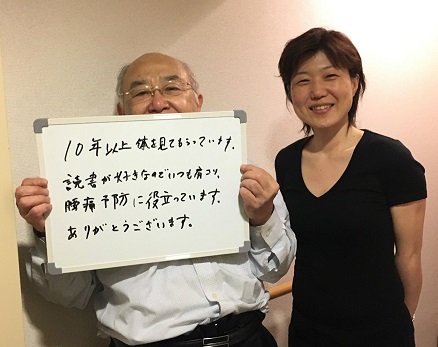 10年以上 体を見てもらっています。
読書が好きなのでいつも肩コリ、
腰痛予防に役立っています。
ありがとうございます。